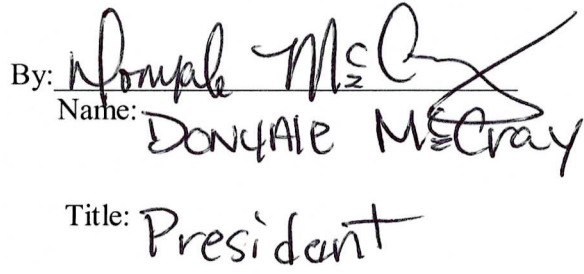 By: Donyale McCray
Name: DONYAlE McCray
Title: President